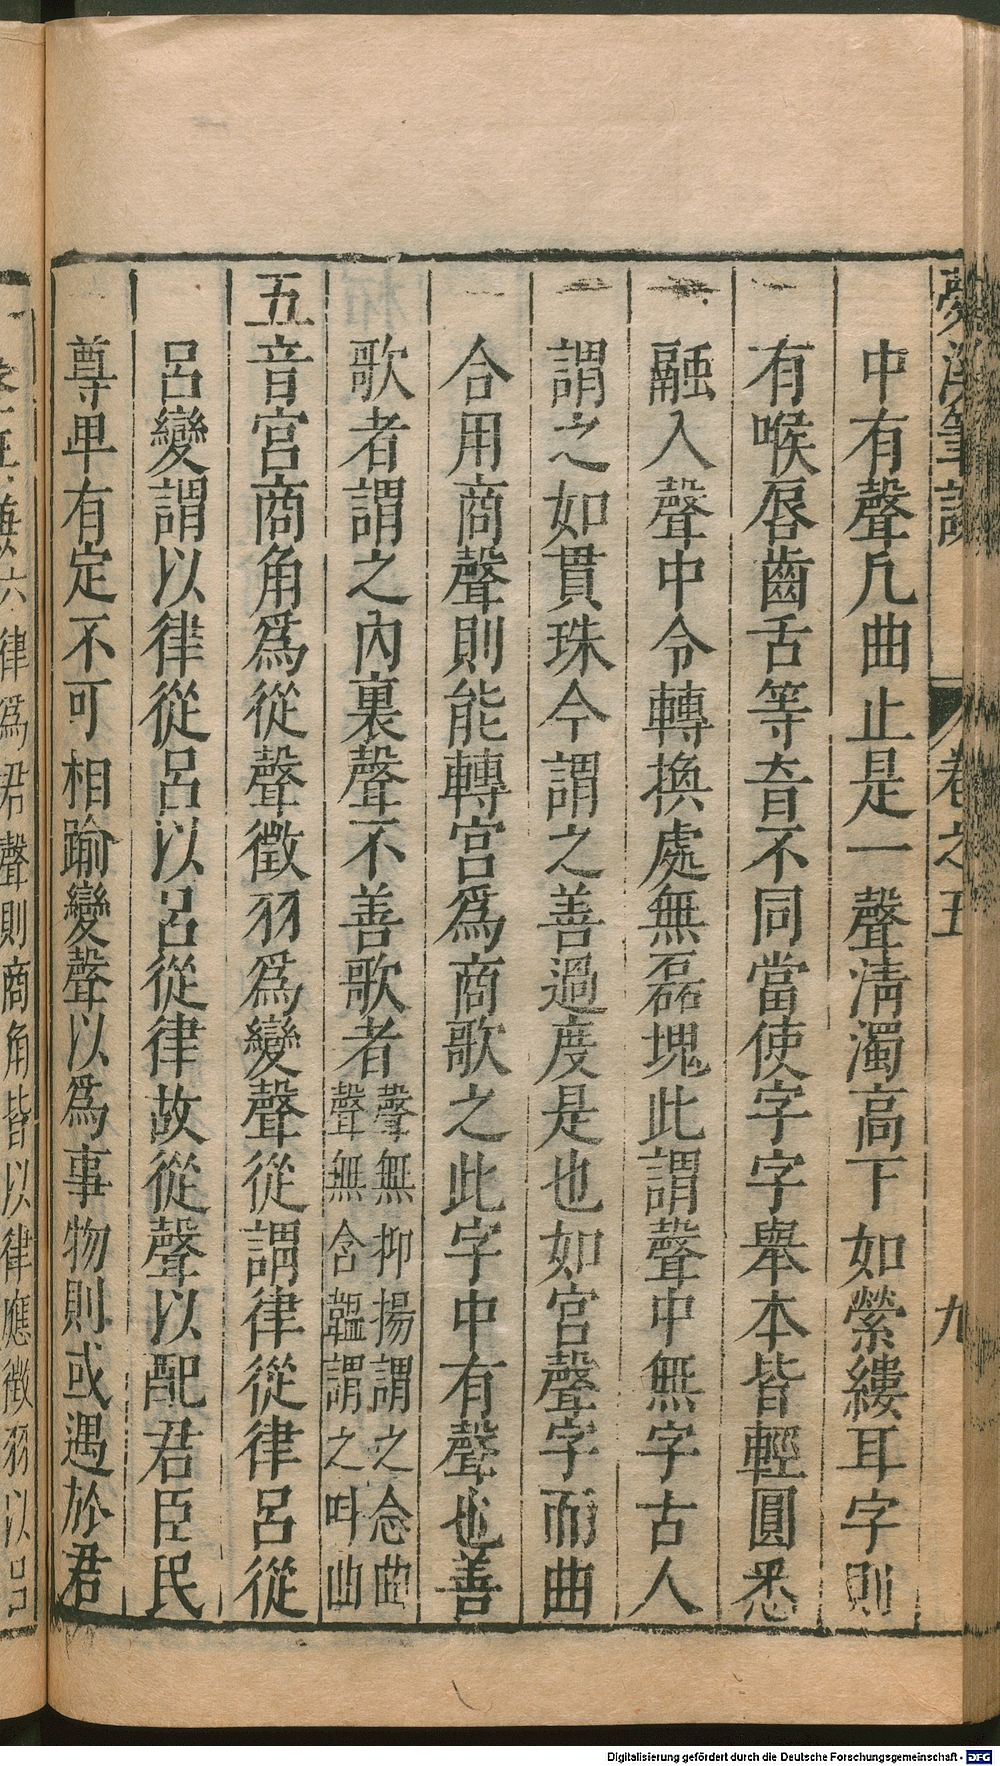 夢溪筆談 卷之五 九
中有聲凡曲止是一聲淸濁高下如縈縷耳字則
有喉唇齒舌等音不同當使字字舉本皆輕圓悉
融入聲中令轉換處無磊塊此謂聲中無字古人
謂之如貫珠今謂之善過度是也如宮聲字而曲
合用商聲則能轉宮爲商歌之此字中有聲也善
歌者謂之內裏聲不善歌者聲無抑揚謂之念曲聲無含韞謂之叫曲
五音宮商角爲從聲徵羽爲變聲從謂律從律呂從
呂變謂以律從呂以呂從律故從聲以配君臣民
尊卑有定不可相踰變聲以爲事物則或遇於君
六律爲君聲則商角皆以律應徵羽以呂
Digitalisierung gefördert durch die Deutsche Forschungsgemeinschaft - DFG